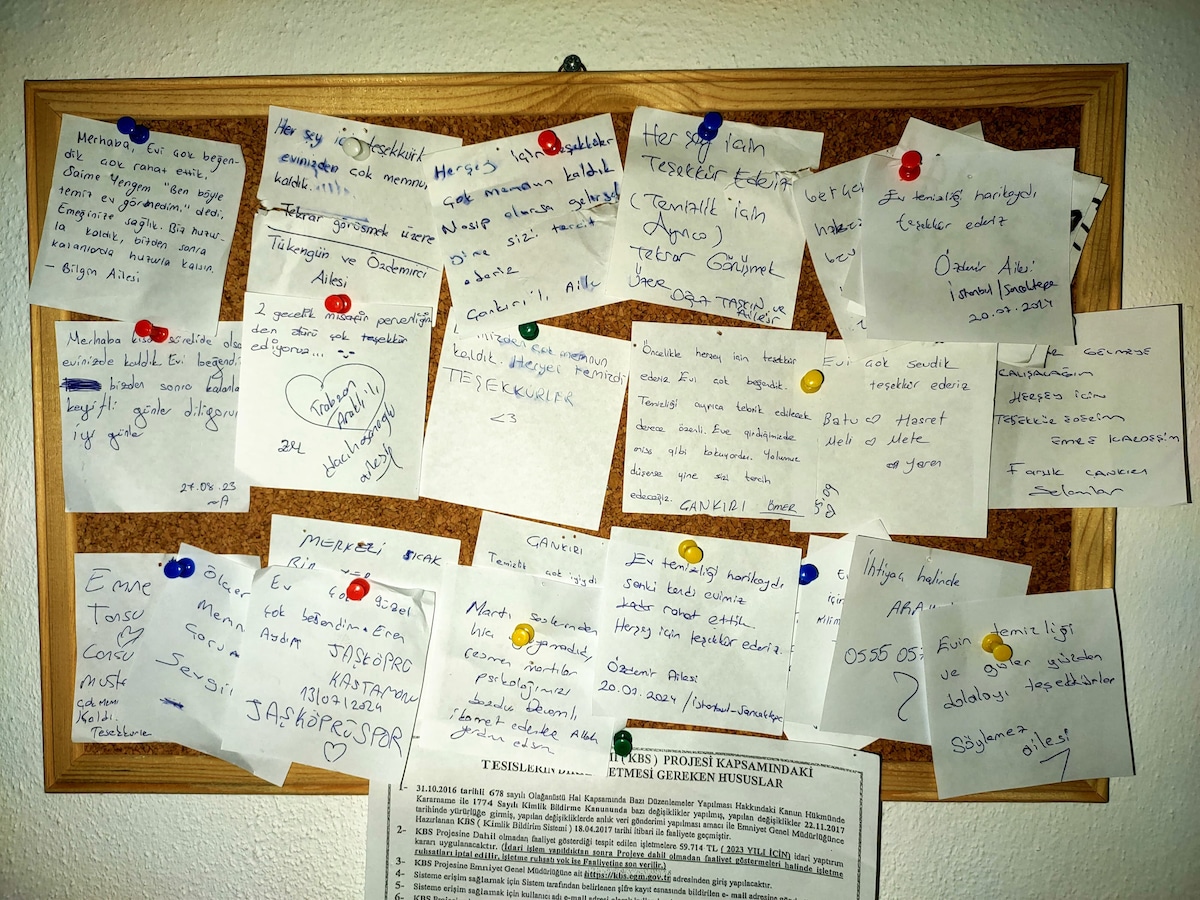 Merhaba, Evi çok beğen-
dik çok rahat ettik.
Saime Yengem "Ben böyle
temiz ev görmedim." dedi,
Emeğinize sağlık. Biz huzur-
la kaldık, bizden sonra
kalanlarda huzurla kalsın.
- Bilgin Ailesi
Her şey için teşekkürk
evinizden çok memnun
kaldık.
Tekrar görüşmek üzere
Tükengün ve Özdemirci
Ailesi
Herşey için teşekküler
çok memnun kaldık
Nasip olursa gelirsek
yine sizi tercih
ederiz
Çankırı'lı Aile
Her şey için
Teşekkür Ederiz
(Temizlik için
Ayrıca)
Tekrar Görüşmek
Üzere
Oğuz TAŞKIN ve
Ailesi
Ev temizliği harikaydı
teşekkür ederiz
Özdemir Ailesi
İstanbul/Sancaktepe
20.07.2024
Merhaba kısa sürelide olsa
evinizde kaldık Evi beğendi
bizden sonra kalanla
keyifli günler diliyorum
iyi günler
27.08.23
~A
2 gecelik misafir perverliğin
den ötürü çok teşekkür
ediyoruz...
Trabzon
Araklı'lı
Hacıhasanoğlu
ailesi
çok memnun
kaldık. Herşey temizdi
TEŞEKKÜRLER
<3
Öncelikle herşey için teşekkür
ederiz Evi çok beğendik.
Temizliği ayrıca tebrik edilecek
derece özenli. Eve girdiğimizde
miss gibi kokuyordu. Yolumuz
düşerse yine sizi tercih
edeceğiz. ÇANKIRI ÖMER
Evi çok sevdik
teşekkür ederiz
Batu ♡ Hasret
Meli ♡ Mete
Yaren
GELMEYE
ÇALIŞACAĞIM
HERŞEY İÇİN
TEŞEKKÜR EDERİM
EMRE KARDEŞİM
Faruk ÇANKIRI
Selamlar
Emne
Tonsu
♡
Consu
Muste
çok mem
Kaldı.
Teşekkürle
Ölçer
Memn
Çorum
Sevgil
MERKEZİ SICAK
BİR
Ev çok güzel
çok beğendim. Eren
Aydın
TAŞKÖPRÜ
KASTAMONU
13/07/2024
TAŞKÖPRÜSPOR
♡
ÇANKIRI
Temizlik çok iyiydi
Martı seslerinden
hiç uyumadık,
çeşme martılar
psikolojimizi
bozdu devamlı
ikamet edenlere Allah
yardım etsin
Ev temizliği harikaydı
sanki kendi evimiz
kadar rahat ettik.
Herşey için teşekkür ederiz.
Özdemir Ailesi
20.07.2024 /İstanbul-Sancaktepe
için
İhtiyaç halinde
0555 05
Evin temizliği
ve güler yüzden
dolalayı teşekkürler
Söylemez
ailesi
(KBS) PROJESİ KAPSAMINDAKİ
TESİSLERİN ETMESİ GEREKEN HUSUSLAR
1- 31.10.2016 tarihli 678 sayılı Olağanüstü Hal Kapsamında Bazı Düzenlemeler Yapılması Hakkındaki Kanun Hükmünde
Kararname ile 1774 Sayılı Kimlik Bildirme Kanununda bazı değişiklikler yapılmış, yapılan değişiklikler 22.11.2017
tarihinde yürürlüğe girmiş, yapılan değişikliklerde anlık veri gönderimi yapılması amacı ile Emniyet Genel Müdürlüğünce
Hazırlanan KBS ( Kimlik Bildirim Sistemi ) 18.04.2017 tarihi itibari ile faaliyete geçmiştir.
2- KBS Projesine Dahil olmadan faaliyet gösterdiği tespit edilen işletmelere 59.714 TL ( 2023 YILI İÇİN) idari yaptırım
kararı uygulanacaktır. (İdari işlem yapıldıktan sonra Projeye dahil olmadan faaliyet göstermeleri halinde işletme
ruhsatları iptal edilir, işletme ruhsatı yok ise Faaliyetine son verilir.)
3- KBS Projesine Emniyet Genel Müdürlüğüne ait https://kbs.egm.gov.tr adresinden giriş yapılacaktır.
4- Sisteme erişim sağlamak için Sistem tarafından belirlenen şifre kayıt esnasında bildirilen e- mail adresine
5- Sisteme erişim sağlamak için kullanıcı adı e-mail adresi olarak
6- KBS